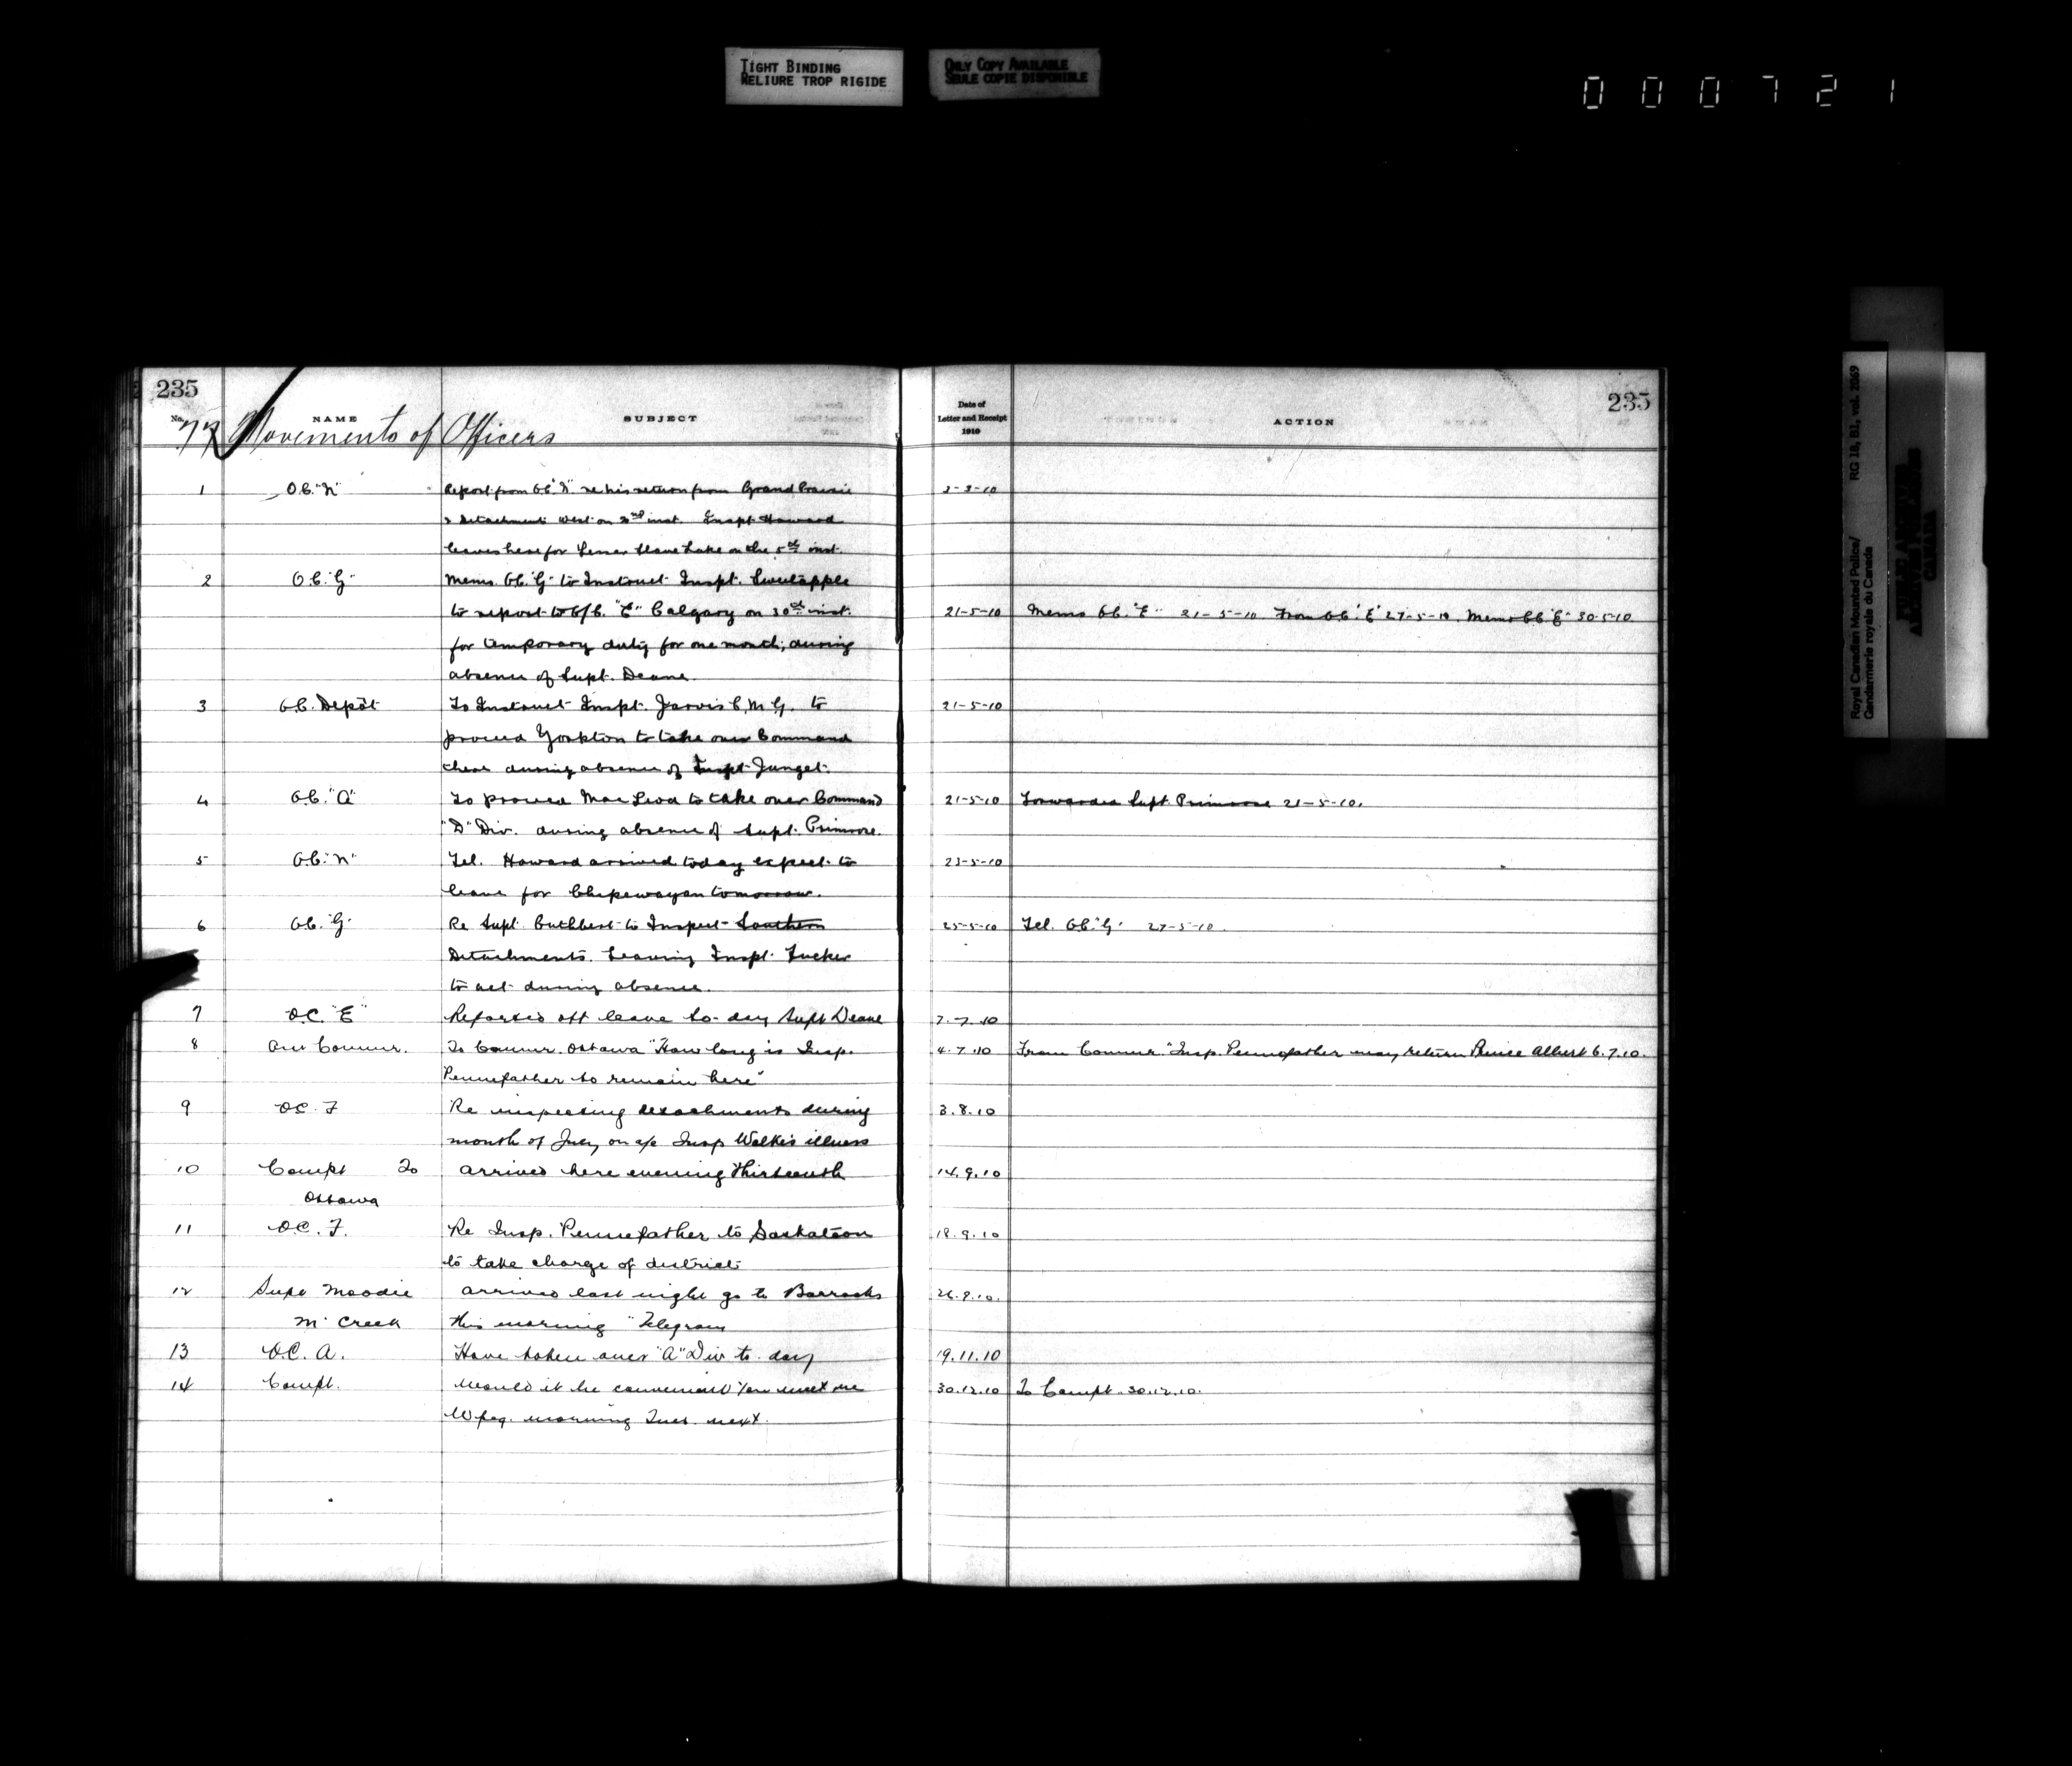 TIGHT BINDING
RELIURE TROP RIGIDE
ONLY COPY AVAILABLE
SEULE COPIE DISPONIBLE
000721
235
No. NAME SUBJECT
77 Movements of Officers
Date of
Letter and Receipt
1910
ACTION
235
1 O.C. "N" Report from OC "N" re his return from Grand Prairie 3-3-10
& Detachments West on 2nd inst. Inspt Howard
leaves here for Lesser Slave Lake on the 5th inst.
2 O.C. "G" Memo OC. "G" to Instruct Inspt. Sweetapple
to report to O/C. "E" Calgary on 30th inst. 21-5-10 Memo OC. "E" 21-5-10 From OC. "E" 27-5-10. Memo OC "E" 30-5-10
for temporary duty for one month, during
absence of Supt. Deane
3 O.C. Depôt To Instruct Inspt. Jarvis C.M.G. to 21-5-10
proceed Yorkton to take over Command
there during absence of Inspt Junget.
4 O.C. "A" To proceed MacLeod to take over Command 21-5-10 Forwarded Supt Primrose 21-5-10.
"D" Div. during absence of Supt. Primrose.
5 O.C. "N" Tel. Howard arrived today expect to 23-5-10
leave for Chipewayan tomorrow.
6 O.C. "G" Re Supt. Cuthbert to Inspect Southern 25-5-10 Tel. O.C. "G" 27-5-10.
Detachments. Leaving Inspt. Tucker
to act during absence.
7 O.C. "E" Reported off leave to-day Supt Deane 7.7.10
8 Asst Commr. To Commr. Ottawa "How long is Insp. 4.7.10 From Commr. "Insp. Pennefather may return Prince Albert 6.7.10.
Pennefather to remain here"
9 O.C. F Re inspecting detachments during 3.8.10
month of July on a/c Insp Walke's illness
10 Compt To arrived here evening thirteenth 14.9.10
Ottawa
11 O.C. F. Re Insp. Pennefather to Saskatoon 18.9.10
to take charge of district
12 Supt Moodie arrived last night go to Barracks 26.9.10.
M. Creek this morning "Telegram
13 O.C. A. Have taken over "A" Div to-day 19.11.10
14 Compt. Would it be convenient you meet me 30.12.10 To Compt. 30.12.10.
Wpeg. morning Tues. next.
Royal Canadian Mounted Police/ RG 18, B1, vol. 2069
Gendarmerie royale du Canada
PUBLIC ARCHIVES
ARCHIVES PUBLIQUES
CANADA